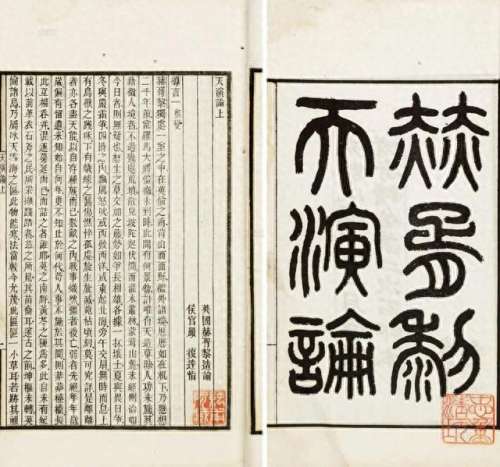 赫胥黎
天演論
天演論上
英國赫胥黎造論
侯官嚴復達恉
導言一 察變
赫胥黎獨處一室之中在英倫之南背山而面野檻外諸境歷歷如在几下乃懸想
二千年前當羅馬大將愷徹未到時此間有何景物計惟有天造草昧人功未施其
藉徵人境者不過幾處荒墳散見坡陀起伏間而灌木叢林蒙茸山麓未經刪治如
今日者則無疑也怒生之草交加之藤勢如爭長相雄各據一抔壤土夏與畏日爭
冬與嚴霜爭四時之內飄風怒吹或西發西洋或東起北海旁午交扇無時而息上
有鳥獸之踐啄下有蟻蝝之齧傷憔悴孤虛旋生旋滅菀枯頃刻莫可究詳是離離
者亦各盡天能以自存種族而已數畝之內戰事熾然彊者後亡弱者先絕年年歲
歲偏有留遺未知始自何年更不知止於何代苟人事不施於其間則莽莽榛榛長
此互相吞并混逐蔓延而已而詰之者誰耶英之南野黃芩之種為多此自未有紀
載以前革衣石斧之民所采擷踐踏者茲之所見其苗裔耳邃古之前坤樞未轉英
倫諸島乃屬冰天雪海之區此物能寒法當較今尤茂此區區一小草耳若跡其
天演論上